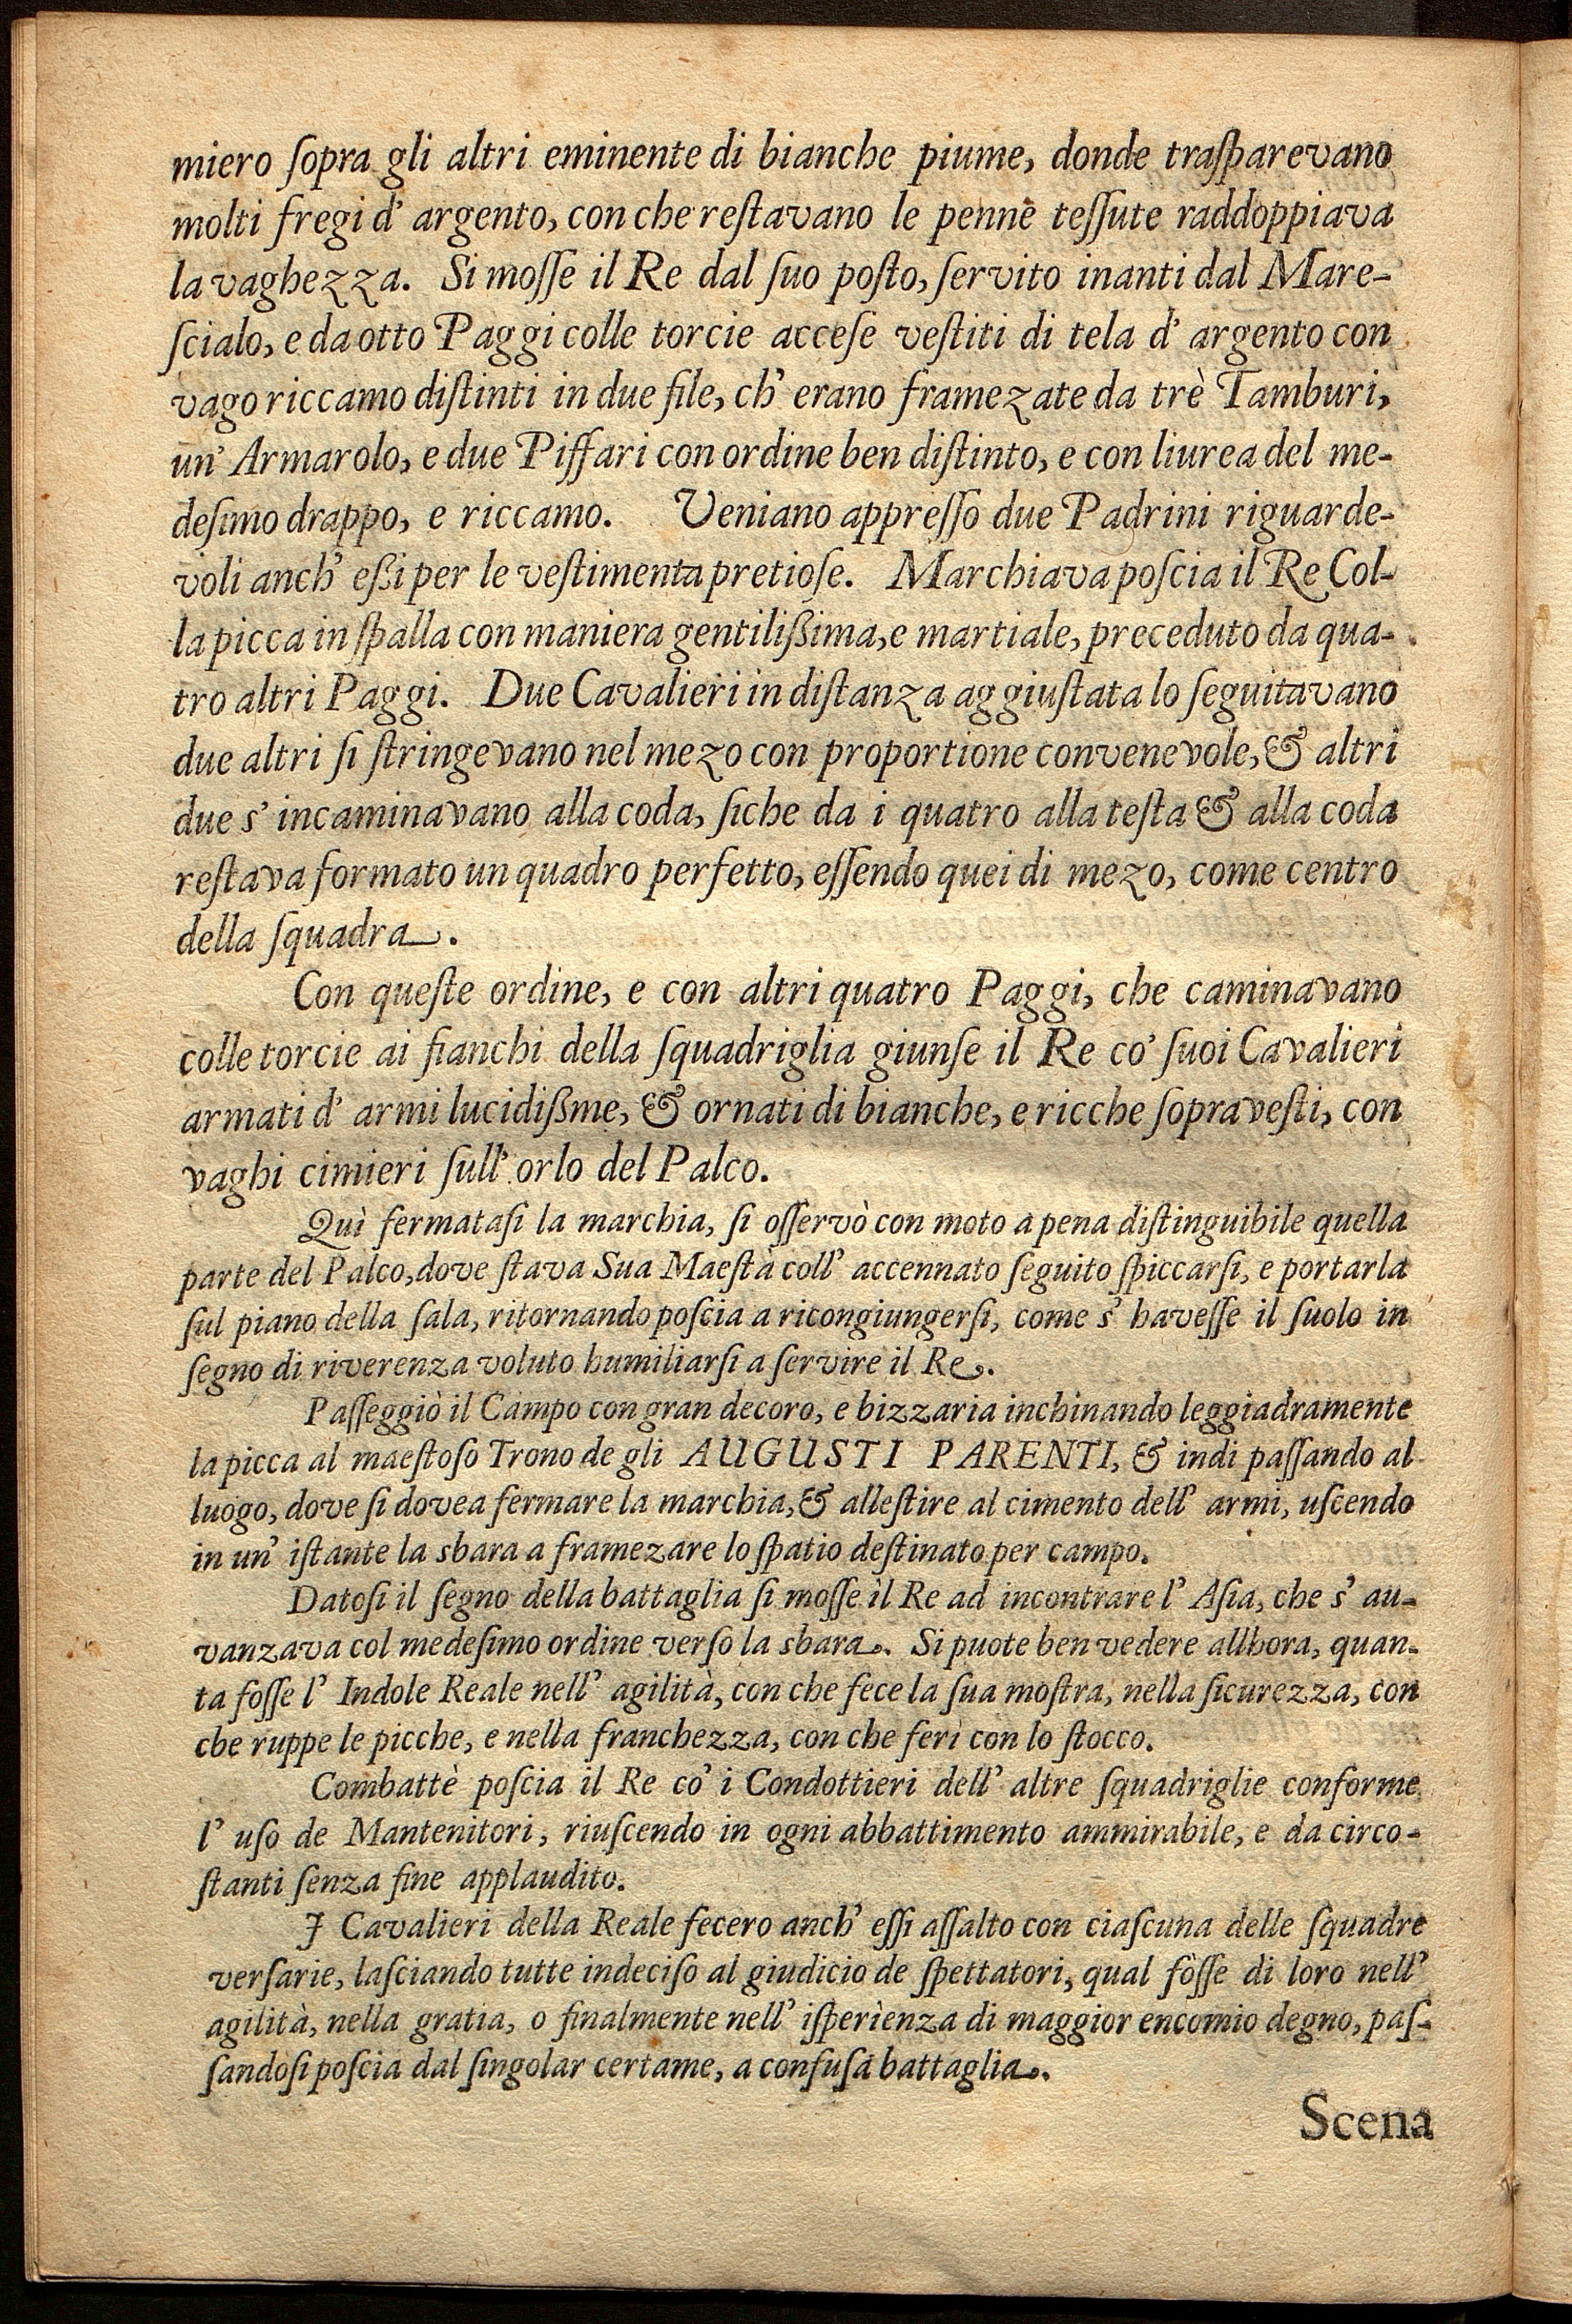 miero ſopra gli altri eminente di bianche piume, donde traſparevano
molti fregi d' argento, con che reſtavano le penne teſſute raddoppiava
la vaghezza. Si moſſe il Re dal ſuo poſto, ſervito inanti dal Mare-
ſcialo, e da otto Paggi colle torcie acceſe veſtiti di tela d' argento con
vago riccamo diſtinti in due file, ch' erano framezate da trè Tamburi,
un' Armarolo, e due Piffari con ordine ben diſtinto, e con liurea del me-
deſimo drappo, e riccamo. Veniano appreſſo due Padrini riguarde-
voli anch' eßi per le veſtimenta pretioſe. Marchiava poſcia il Re Col-
la picca in ſpalla con maniera gentilißima, e martiale, preceduto da qua-
tro altri Paggi. Due Cavalieri in diſtanza aggiuſtata lo ſeguitavano
due altri ſi ſtringevano nel mezo con proportione convenevole, & altri
due s' incaminavano alla coda, ſiche da i quatro alla teſta & alla coda
reſtava formato un quadro perfetto, eſſendo quei di mezo, come centro
della ſquadra.
Con queſte ordine, e con altri quatro Paggi, che caminavano
colle torcie ai fianchi della ſquadriglia giunſe il Re co' ſuoi Cavalieri
armati d' armi lucidißme, & ornati di bianche, e ricche ſopraveſti, con
vaghi cimieri ſull' orlo del Palco.
Quì fermataſi la marchia, ſi oſſervò con moto a pena diſtinguibile quella
parte del Palco, dove ſtava Sua Maeſtà coll' accennato ſeguito ſpiccarſi, e portarla
ſul piano della ſala, ritornando poſcia a ricongiungerſi, come s' haveſſe il ſuolo in
ſegno di riverenza voluto humiliarſi a ſervire il Re.
Paſſeggiò il Campo con gran decoro, e bizzaria inchinando leggiadramente
la picca al maeſtoſo Trono de gli AUGUSTI PARENTI, & indi paſſando al
luogo, dove ſi dovea fermare la marchia, & alleſtire al cimento dell' armi, uſcendo
in un' iſtante la sbara a framezare lo ſpatio deſtinato per campo.
Datoſi il ſegno della battaglia ſi moſſe il Re ad incontrare l' Aſia, che s' au-
vanzava col medeſimo ordine verſo la sbara. Si puote ben vedere allhora, quan-
ta foſſe l' Indole Reale nell' agilità, con che fece la ſua moſtra, nella ſicurezza, con
che ruppe le picche, e nella franchezza, con che ferì con lo ſtocco.
Combattè poſcia il Re co' i Condottieri dell' altre ſquadriglie conforme
l' uſo de Mantenitori, riuſcendo in ogni abbattimento ammirabile, e da circo-
ſtanti ſenza fine applaudito.
I Cavalieri della Reale fecero anch' eſſi aſſalto con ciaſcuna delle ſquadre
verſarie, laſciando tutte indeciſo al giudicio de ſpettatori, qual fòſſe di loro nell'
agilità, nella gratia, o finalmente nell' iſperìenza di maggior encomio degno, paſ-
ſandoſi poſcia dal ſingolar certame, a confuſa battaglia.
Scena